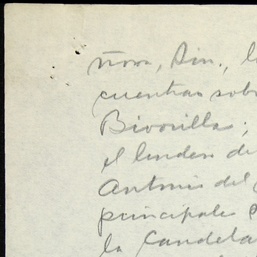 ñora, Sin., l
cuentran sob
Bivorillas;
el linden de
Antonio del
principales
la Candela